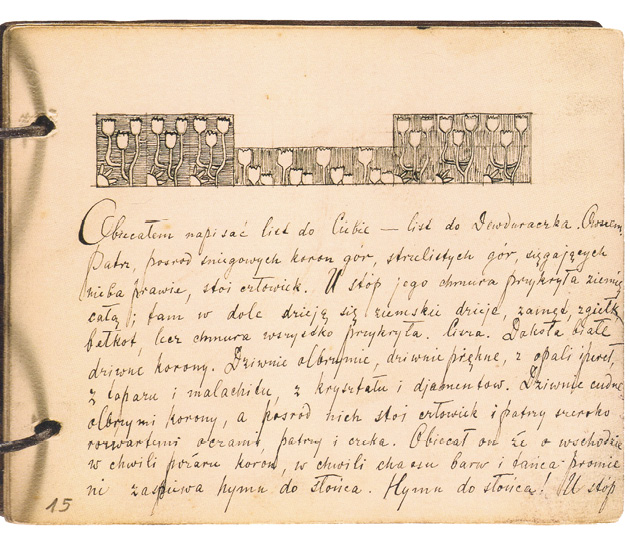 Obiecałem napisać list do Ciebie — list do Dewduraczka. Owszem.
Patrz, pośród śniegowych koron gór, strzelistych gór, sięgających
nieba prawie, stoi człowiek. U stóp jego chmura przykryła ziemię
całą i tam w dole dzieją się ziemskie dzieje, zamęt, zgiełk,
bełkot, lecz chmura wszystko przykryła. Cisza. Dokoła białe
dziwne korony. Dziwnie olbrzymie, dziwnie piękne, z opali i pereł,
z topazu i malachitu, z kryształu i djamentów. Dziwnie cudne
olbrzymi korony, a pośród nich stoi człowiek i patrzy szeroko
rozwartemi oczami, patrzy i czeka. Obiecał on że o wschodzie
w chwili pożaru koron, w chwili chaosu barw i tańca promie
ni zaśpiewa hymn do słońca. Hymn do słońca! U stóp
15